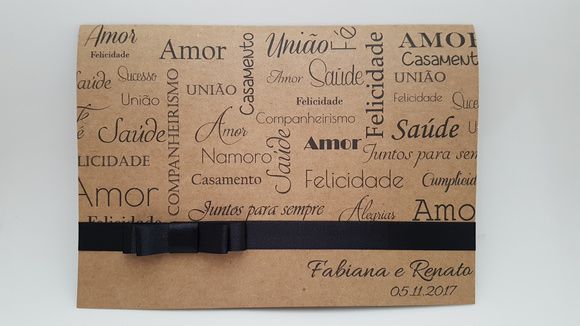 Amor
Felicidade
Amor
União
Fé
Felicidade
AMOR
Casamento
Casamento
Saúde
Sucesso
União
COMPANHEIRISMO
UNIÃO
Amor
Saúde
Felicidade
UNIÃO
Felicidade
Fé
Saúde
Amor
Companheirismo
Saúde
União
LICIDADE
Namoro
Saúde
Amor
Juntos para sem
Amor
Casamento
Felicidade
Cumplicid
Juntos para sempre
Alegrias
Amor
Fabiana e Renato
05.11.2017